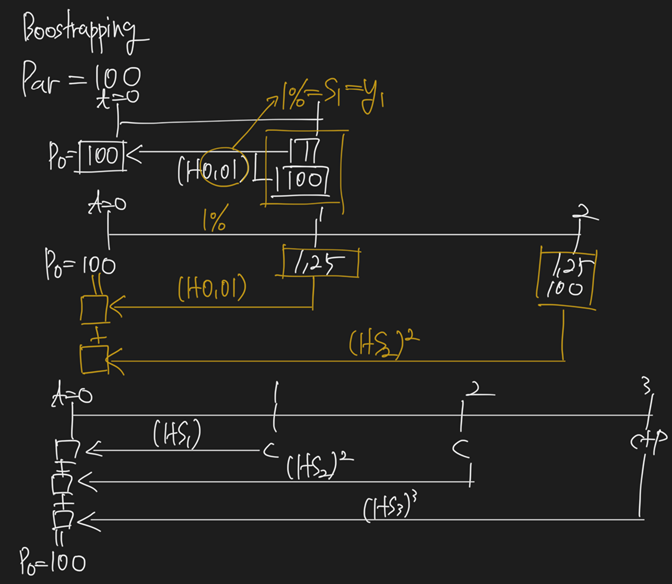 Boostrapping
Par = 100
t=0
1% = S₁ = y₁
P₀ = 100
(1+0.01)
1
100
t=0
1%
1
2
P₀ = 100
1.25
1.25
100
(1+0.01)
+
(1+S₂)²
t=0
1
2
3
(1+S₁)
C
C
C+P
+
(1+S₂)²
+
(1+S₃)³
P₀=100